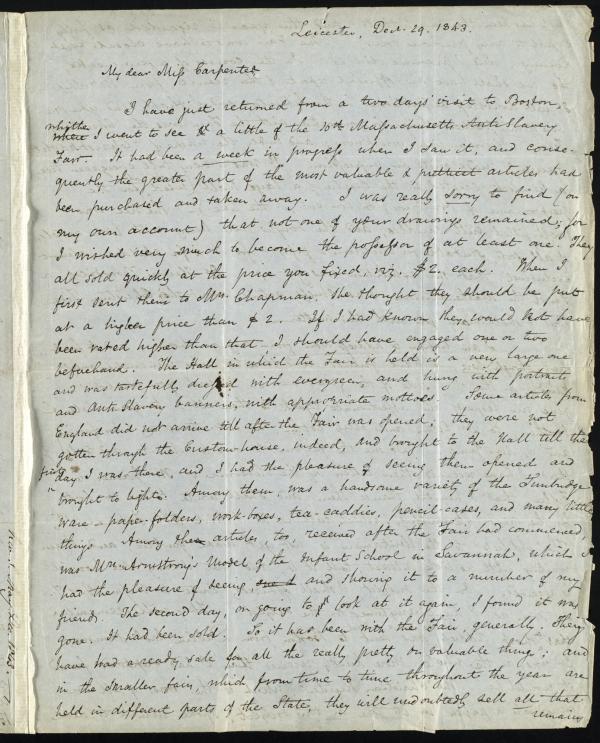 Leicester, Dec. 29. 1843.
My dear Miss Carpenter,
I have just returned from a two days' visit to Boston,
whither
where I went to see a little of the 10th Massachusetts Anti Slavery
Fair. It had been a week in progress when I saw it, and conse-
quently the greater part of the most valuable & prettiest articles had
been purchased and taken away. I was really sorry to find (on
my own account) that not one of your drawings remained; for
I wished very much to become the possessor of at least one. They
all sold quickly at the price you fixed, viz. $2. each. When I
first sent them to Mrs. Chapman, she thought they should be put
at a higher price than $2. If I had known they would not have
been rated higher than that I should have engaged one or two
beforehand. The Hall in which the Fair is held is a very large one
and was tastefully dressed with evergreen, and hung with portraits
and Anti Slavery banners, with appropriate mottoes. Some articles from
England did not arrive till after the Fair was opened; they were not
gotten through the Custom-house, indeed, and brought to the Hall till the
first
day I was there, and I had the pleasure of seeing them opened and
brought to light. Among them, was a handsome variety of the Tunbridge
ware - paper-folders, work-boxes, tea-caddies, pencil-cases, and many little
things. Among the articles, too, received after the Fair had commenced,
was Mrs. Armstrong's Model of the Infant School in Savannah, which I
had the pleasure of seeing, and showing it to a number of my
friends. The second day, on going to look at it again, I found it was
gone. It had been sold. So it has been with the Fair, generally. They
have had a ready sale for all the really pretty or valuable things; and
in the smaller fairs, which from time to time throughout the year are
held in different parts of the State, they will undoubtedly sell all that
remains